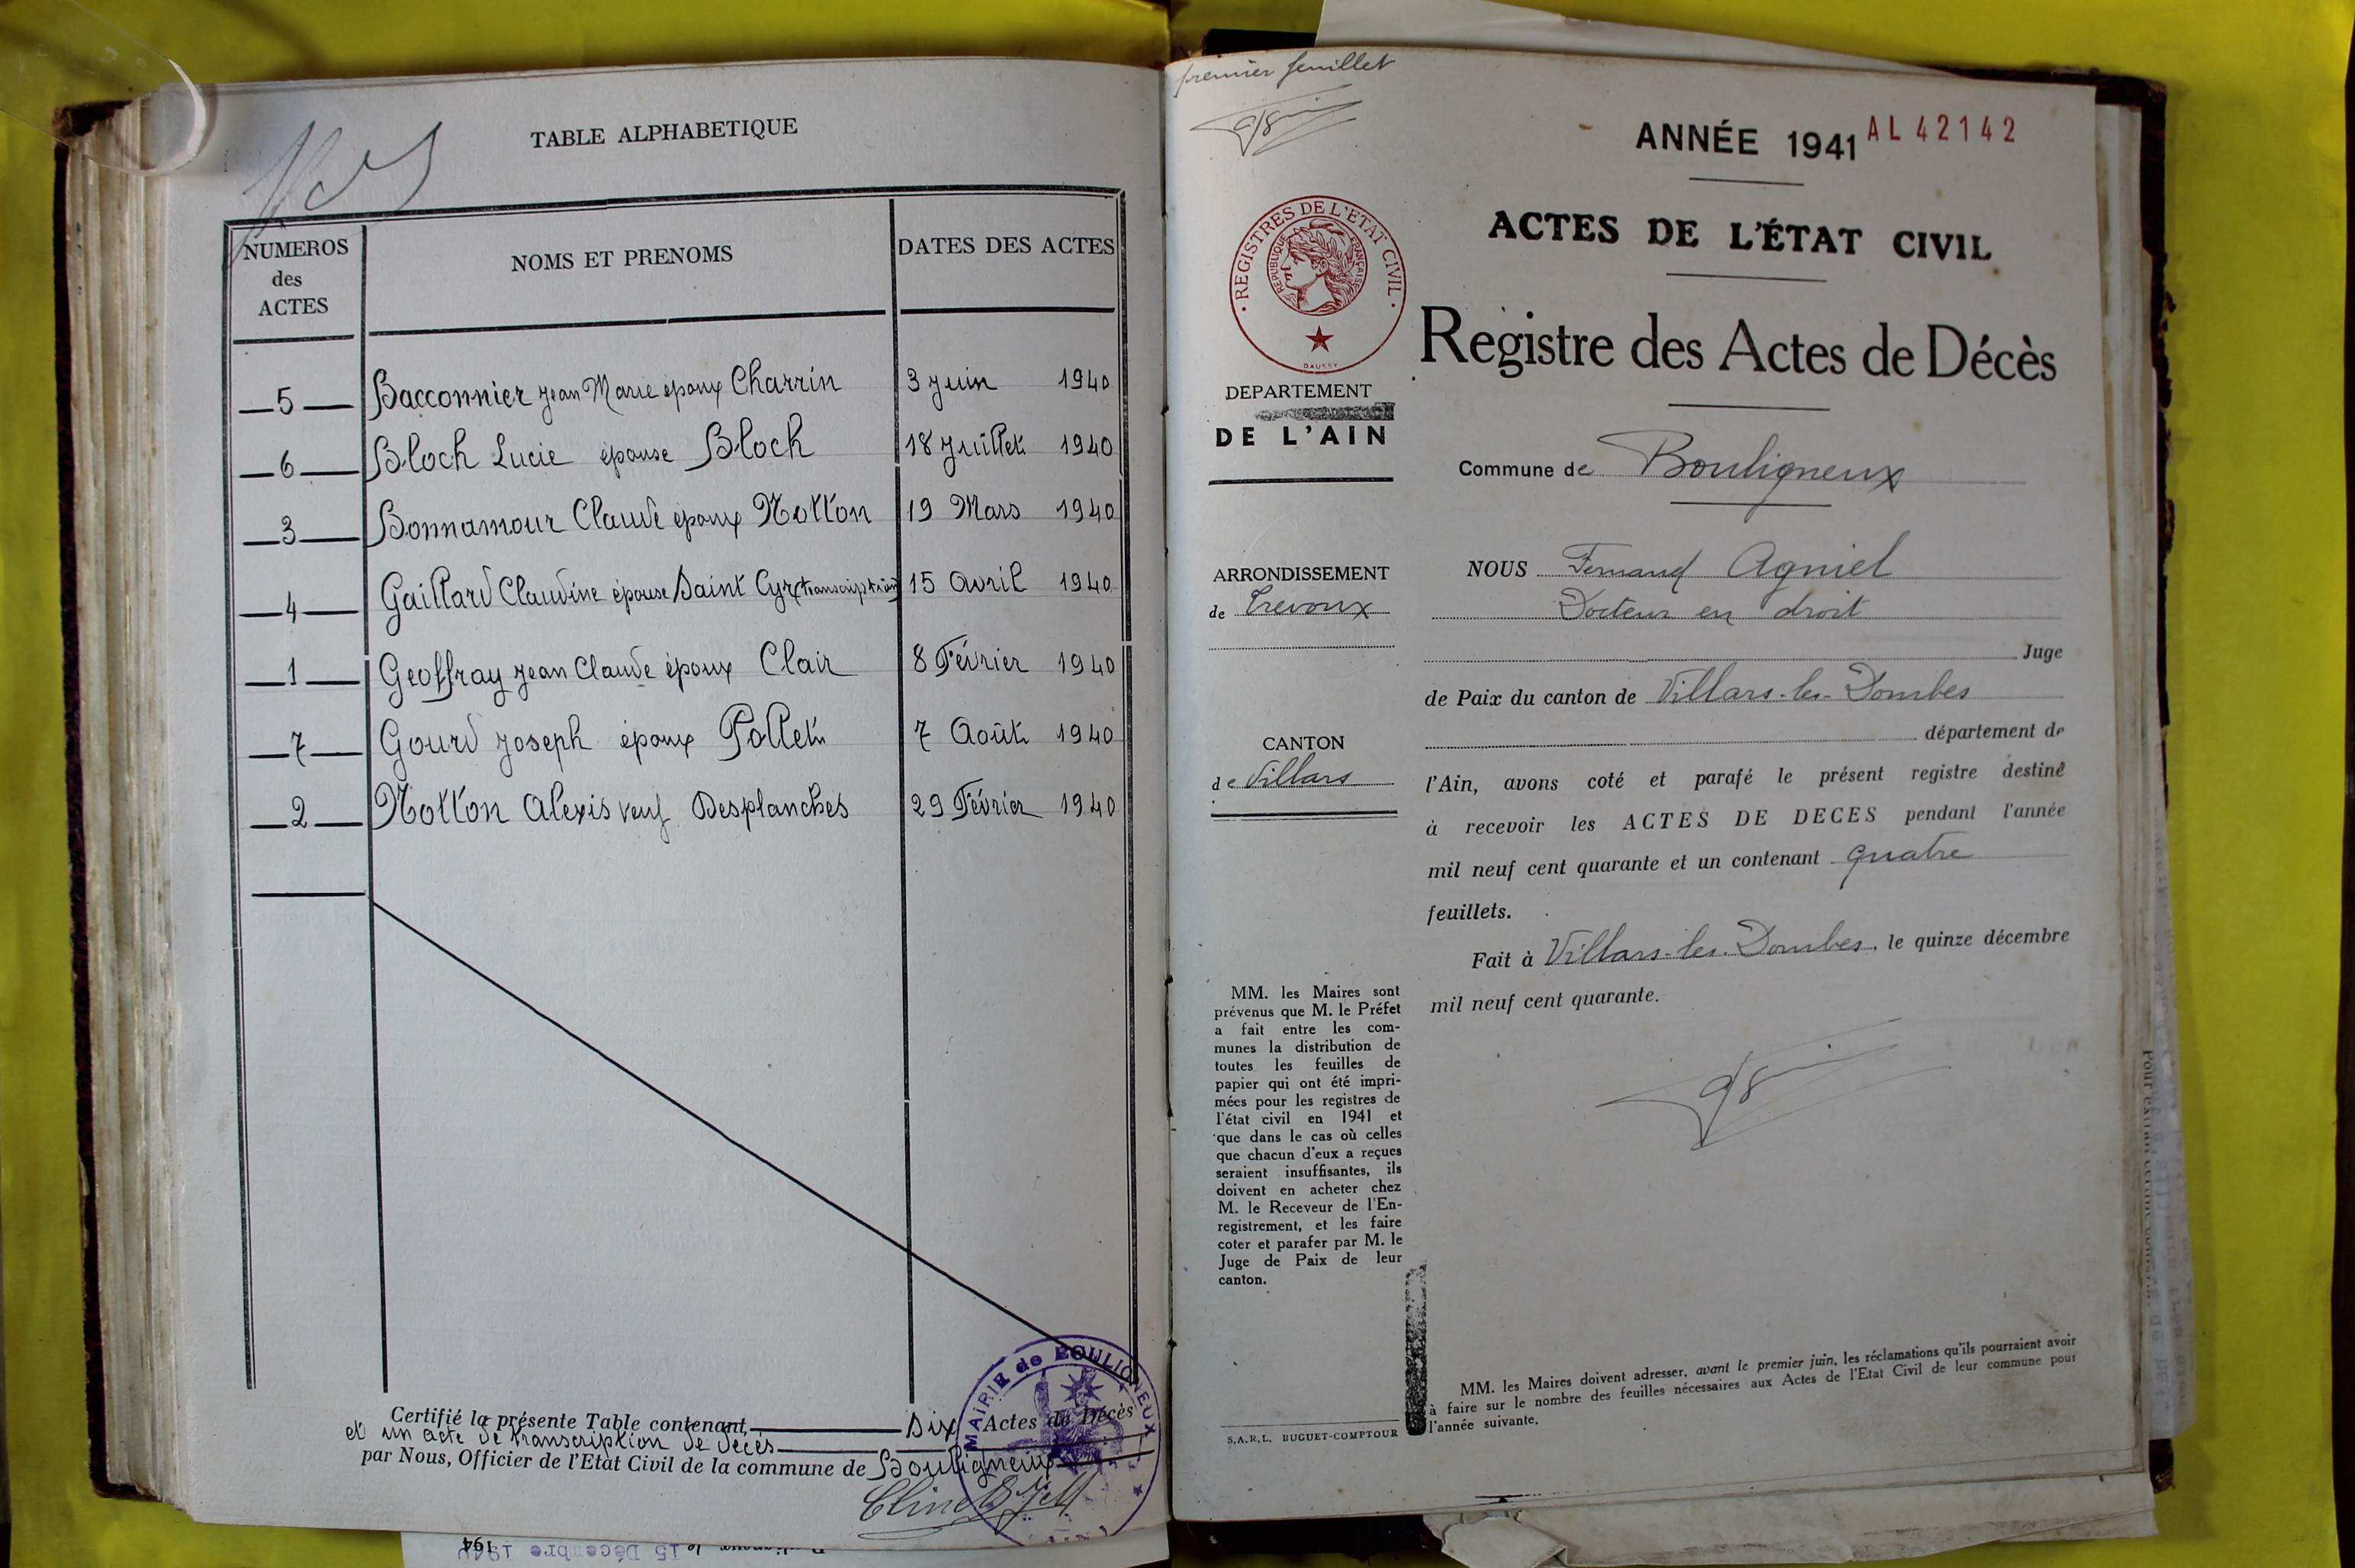 TABLE ALPHABETIQUE
NUMEROS des ACTES
NOMS ET PRENOMS
DATES DES ACTES
5 Bacconnier Jean Marie époux Charrin 3 Juin 1940
6 Bloch Lucie épouse Bloch 18 Juillet 1940
3 Bonnamour Claude époux Notton 19 Mars 1940
4 Gaillard Claudine épouse Saint Cyr (transcription) 15 Avril 1940
1 Geoffray Jean Claude époux Clair 8 Février 1940
7 Gourd Joseph époux Pollet 7 Août 1940
2 Notton Alexis veuf Desplanches 29 Février 1940
Certifié la présente Table contenant Six Actes de Décès
et un acte de transcription de décès
par Nous, Officier de l'Etat Civil de la commune de Bouligneux
MAIRIE de BOULIGNEUX
15 Décembre 194
premier feuillet
ANNÉE 1941 AL 42142
REGISTRES DE L'ETAT CIVIL
REPUBLIQUE FRANÇAISE
DAUSSY
ACTES DE L'ÉTAT CIVIL
Registre des Actes de Décès
DEPARTEMENT
DE L'AIN
Commune de Bouligneux
ARRONDISSEMENT
de Trevoux
CANTON
de Villars
NOUS Fernand Agniel
Docteur en droit
Juge
de Paix du canton de Villars-les-Dombes
département de
l'Ain, avons coté et parafé le présent registre destiné
à recevoir les ACTES DE DECES pendant l'année
mil neuf cent quarante et un contenant quatre
feuillets.
Fait à Villars-les-Dombes, le quinze décembre
mil neuf cent quarante.
MM. les Maires sont
prévenus que M. le Préfet
a fait entre les com-
munes la distribution de
toutes les feuilles de
papier qui ont été impri-
mées pour les registres de
l'état civil en 1941 et
que dans le cas où celles
que chacun d'eux a reçues
seraient insuffisantes, ils
doivent en acheter chez
M. le Receveur de l'En-
registrement, et les faire
coter et parafer par M. le
Juge de Paix de leur
canton.
S.A.R.L. BUGUET-COMPTOUR
MM. les Maires doivent adresser, avant le premier juin, les réclamations qu'ils pourraient avoir
à faire sur le nombre des feuilles nécessaires aux Actes de l'Etat Civil de leur commune pour
l'année suivante.